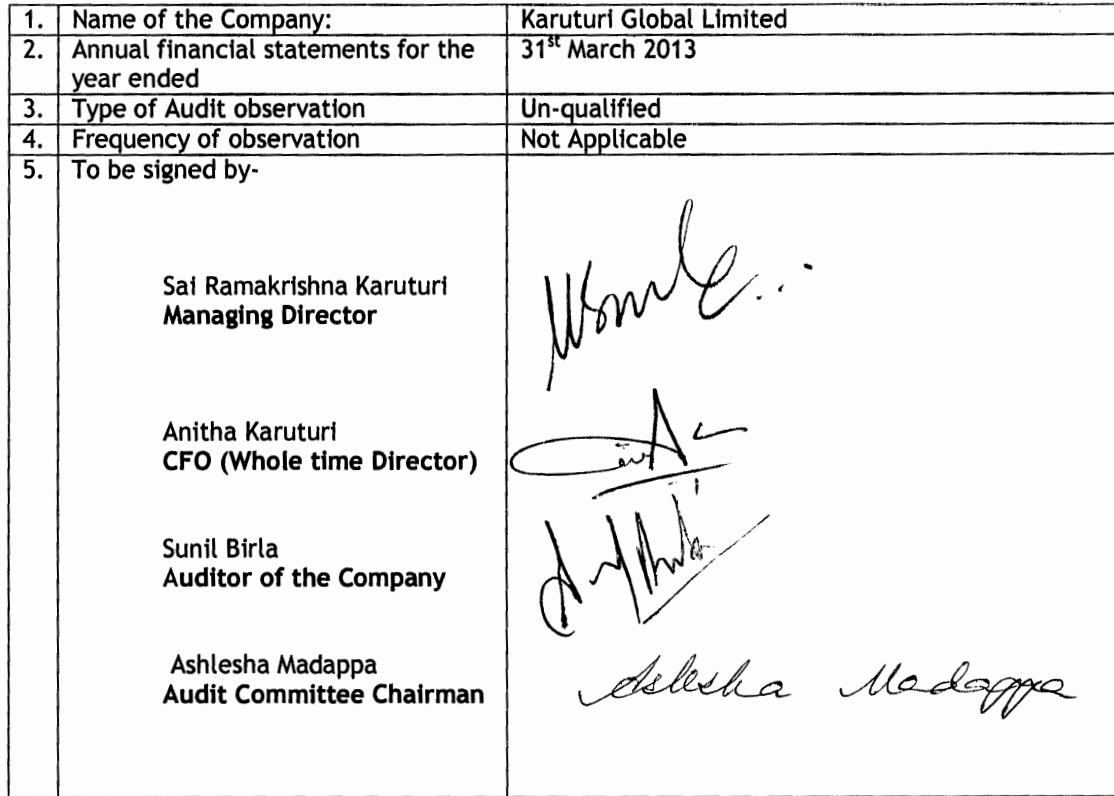 1. Name of the Company: Karuturi Global Limited
2. Annual financial statements for the 31st March 2013
year ended
3. Type of Audit observation Un-qualified
4. Frequency of observation Not Applicable
5. To be signed by-
Sai Ramakrishna Karuturi
Managing Director
Anitha Karuturi
CFO (Whole time Director)
Sunil Birla
Auditor of the Company
Ashlesha Madappa
Audit Committee Chairman
Ashlesha Madappa